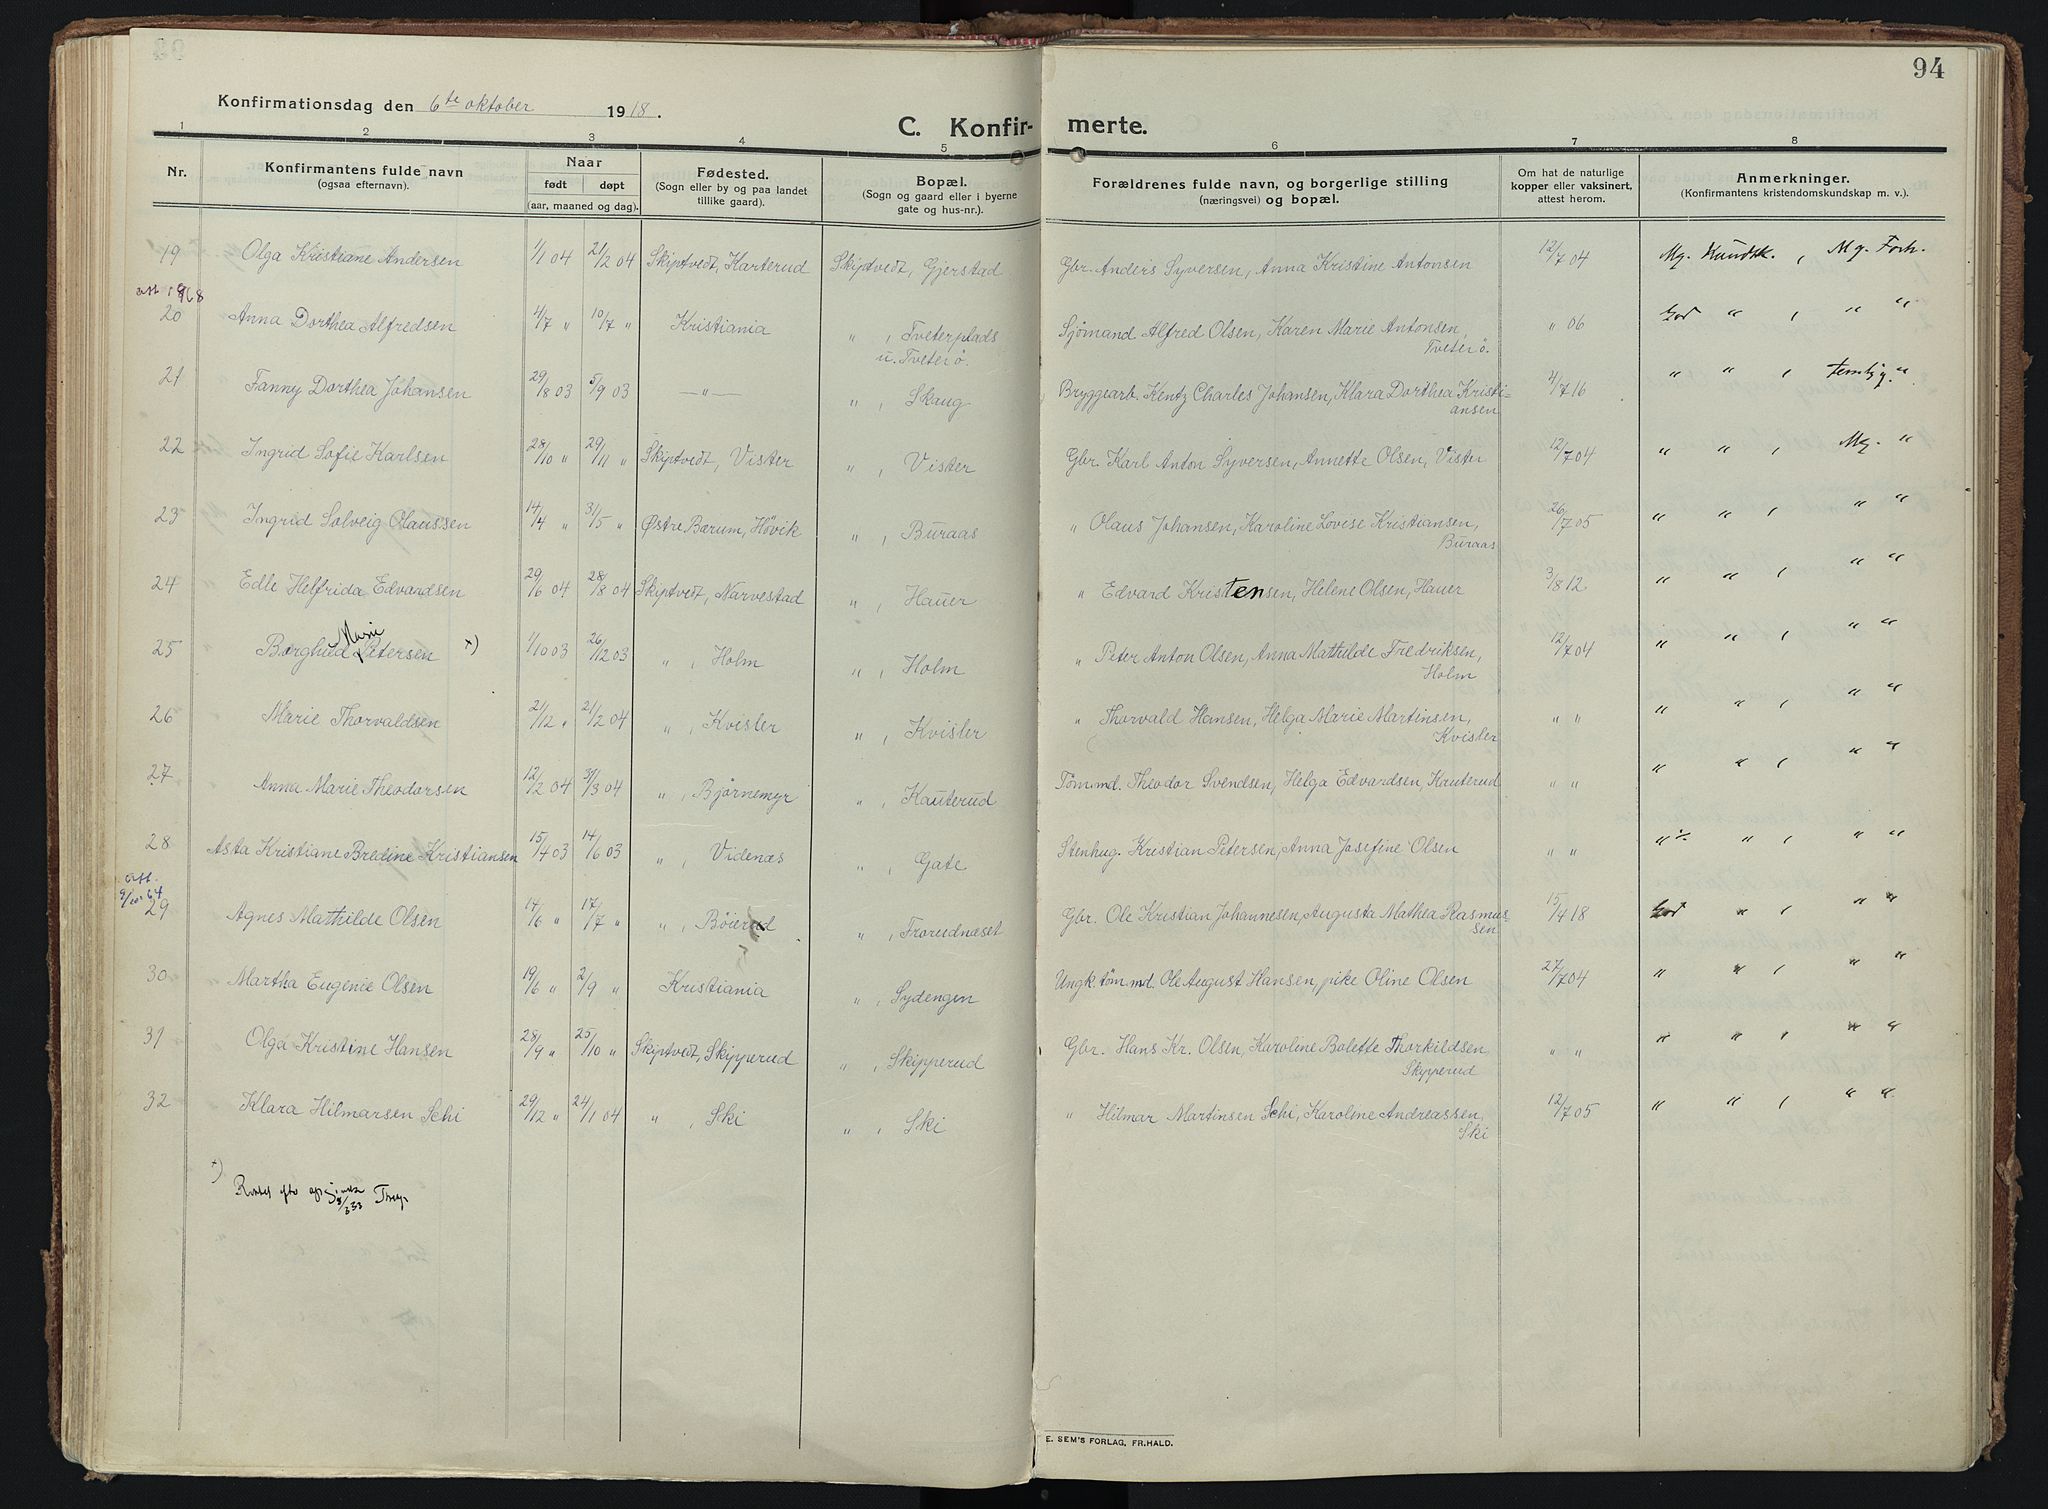 94
Konfirmationsdag den 6te oktober 1918.
C. Konfir- merte.
1 2 3 4 5 6 7 8
Nr. Konfirmantens fulde navn (ogsaa efternavn). Naar født døpt (aar, maaned og dag). Fødested. (Sogn eller by og paa landet tillike gaard). Bopæl. (Sogn og gaard eller i byerne gate og hus-nr.). Forældrenes fulde navn, og borgerlige stilling (næringsvei) og bopæl. Om hat de naturlige kopper eller vaksinert, attest herom. Anmerkninger. (Konfirmantens kristendomskundskap m. v.).
19 Olga Kristiane Andersen 1/1 04 21/2 04 Skiptvedt, Karterud Skiptvedt, Gjerstad Gbr. Anders Syversen, Anna Kristine Antonsen 12/7 04 Mg. Kundsk. , Mg. Forh.
att 1968
20 Anna Dorthea Alfredsen 4/7 " 10/7 " Kristiania " , Tveterplads u. Tveter ö Sjömand Alfred Olsen, Karen Marie Antonsen, Tveter ö. " 06 God " , " "
21 Fanny Dorthea Johansen 29/8 03 5/9 03 —"— " , Skaug Bryggearb. Kentz Charles Johansen, Klara Dorthea Kristi- ansen 4/7 16 " " , "
22 Ingrid Sofie Karlsen 28/10 " 29/11 " Skiptvedt, Vister " , Vister Gbr. Karl Anton Syversen, Annette Olsen, Vister 12/7 04 " " , Mg. "
23 Ingrid Solveig Olaussen 14/4 " 31/5 " Østre Bærum, Hövik " , Buraas " Olaus Johansen, Karoline Lovise Kristiansen, Buraas 26/7 05 " " , " "
24 Edle Helfrida Edvardsen 29/6 04 28/8 04 Skiptvedt, Narvestad " , Hauer " Edvard Kristensen, Helene Olsen, Hauer 3/8 12 " " , " "
25 Borghild Marie Petersen +) 1/10 03 26/12 03 " , Holm " , Holm " Peter Anton Olsen, Anna Mathilde Fredriksen, Holm 12/7 04 " " , " "
26 Marie Thorvaldsen 21/12 " 21/2 04 " , Kvisler " , Kvisler " Thorvald Hansen, Helga Marie Martinsen, Kvisler " " " " , " "
27 Anna Marie Theodorsen 12/2 04 31/3 04 " , Bjørnemyr " , Kauterud Tøm.md. Theodor Svendsen, Helga Edvardsen, Kauterud " " " " , " "
28 Asta Kristiane Bredine Kristiansen 15/4 03 14/6 03 " , Videnæs " , Gate Stenhug. Kristian Petersen, Anna Josefine Olsen " " " " , " "
att. 9/10-64
29 Agnes Mathilde Olsen 14/6 " 17/7 " " , Böierud " , Frorudnæset Gbr. Ole Kristian Johannesen, Augusta Mathea Rasmus- sen 15/4 18 God " , " "
30 Martha Eugenie Olsen 19/6 " 2/9 " Kristiania " , Sydengen Ungk. töm.md. Ole August Hansen, pike Oline Olsen 27/7 04 " " , " "
31 Olga Kristine Hansen 28/9 " 25/10 " Skiptvedt, Skipperud " , Skipperud Gbr. Hans Kr. Olsen, Karoline Bolette Thorkildsen Skipperud " " " " , " "
32 Klara Hilmarsen Schi 29/12 " 24/1 04 " , Ski " , Ski " Hilmar Martinsen Schi, Karoline Andreassen, Ski 12/7 05 " " , " "
+) Rettet efter
E. SEM'S FORLAG, FR.HALD.